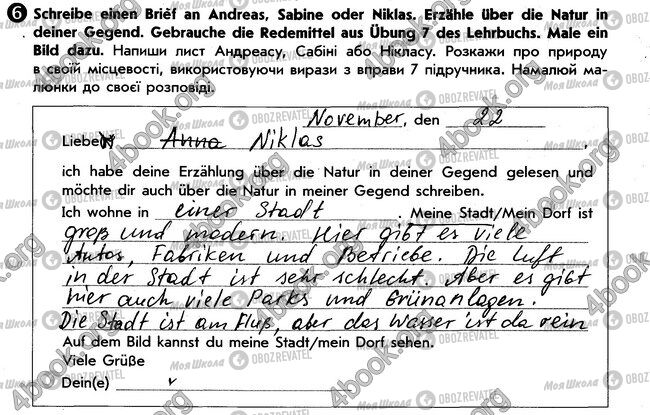 6 Schreibe einen Brief an Andreas, Sabine oder Niklas. Erzähle über die Natur in
deiner Gegend. Gebrauche die Redemittel aus Übung 7 des Lehrbuchs. Male ein
Bild dazu. Напиши лист Андреасу, Сабіні або Нікласу. Розкажи про природу
в своїй місцевості, використовуючи вирази з вправи 7 підручника. Намалюй ма-
люнки до своєї розповіді.
November, den 22
Liebe Anna Niklas ,
ich habe deine Erzählung über die Natur in deiner Gegend gelesen und
möchte dir auch über die Natur in meiner Gegend schreiben.
Ich wohne in einer Stadt . Meine Stadt/Mein Dorf ist
groß und modern. Hier gibt es viele
Autos, Fabriken und Betriebe. Die Luft
in der Stadt ist sehr schlecht. Aber es gibt
hier auch viele Parks und Grünanlagen.
Die Stadt ist am Fluß, aber das Wasser ist da rein
Auf dem Bild kannst du meine Stadt/mein Dorf sehen.
Viele Grüße
Dein(e) v